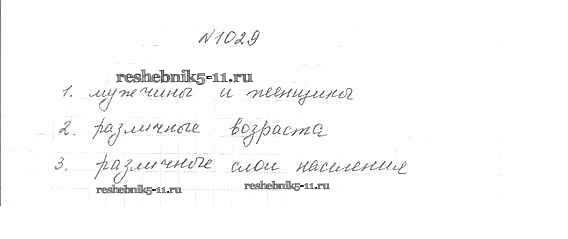 №1029
reshebnik5-11.ru
1. мужчины и женщины
2. различные возраста
3. различные слои населения
reshebnik5-11.ru reshebnik5-11.ru